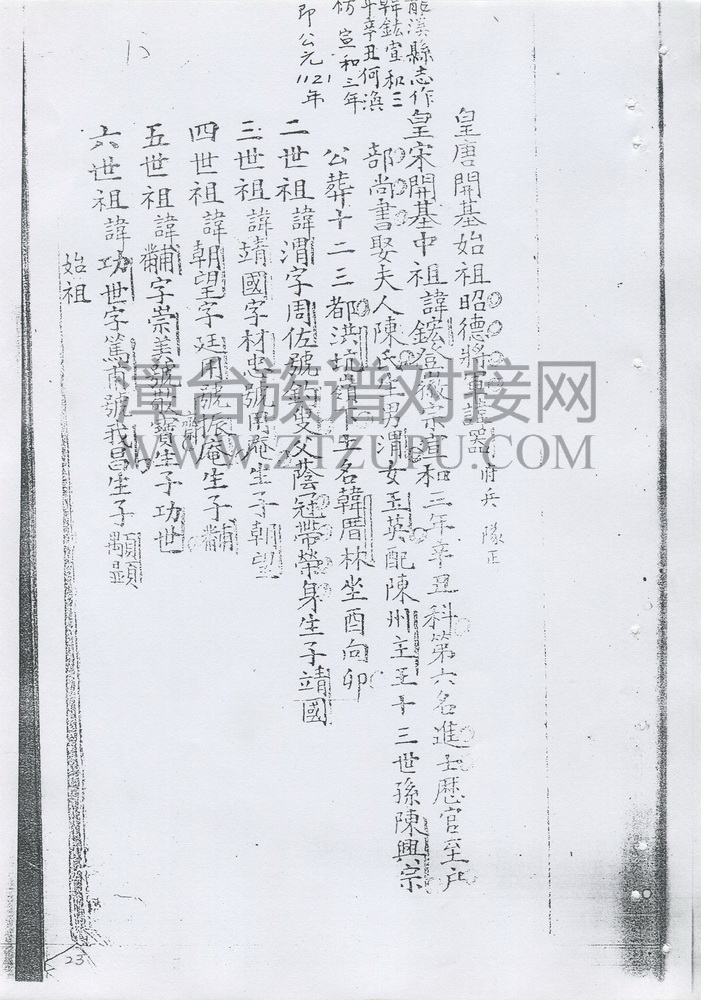 皇唐開基始祖昭德將軍諱器府兵隊正
皇宋開基中祖諱鋐徽宗宣和三年辛丑科第六名進士歷官至户
部尚書娶夫人陳氏生男渭女玉英配陳州主王十三世孫陳興宗
公葬十二三都洪坑嶺土名韓厝林坐酉向卯
二世祖諱渭字周佐號叟父蔭冠帶榮身生子靖國
三世祖諱靖國字材忠號用庵生子朝望
四世祖諱朝望字廷用號振庵生子黼
五世祖諱黼字崇美號寶生子功世
六世祖諱功世字篤甫號我昌生子顒顯
始祖
龍溪縣志作
韓鋐宣和三
年辛丑何渙
榜宣和三年
即公元1121年
23
漳台族谱对接网
WWW.ZTZUPU.COM